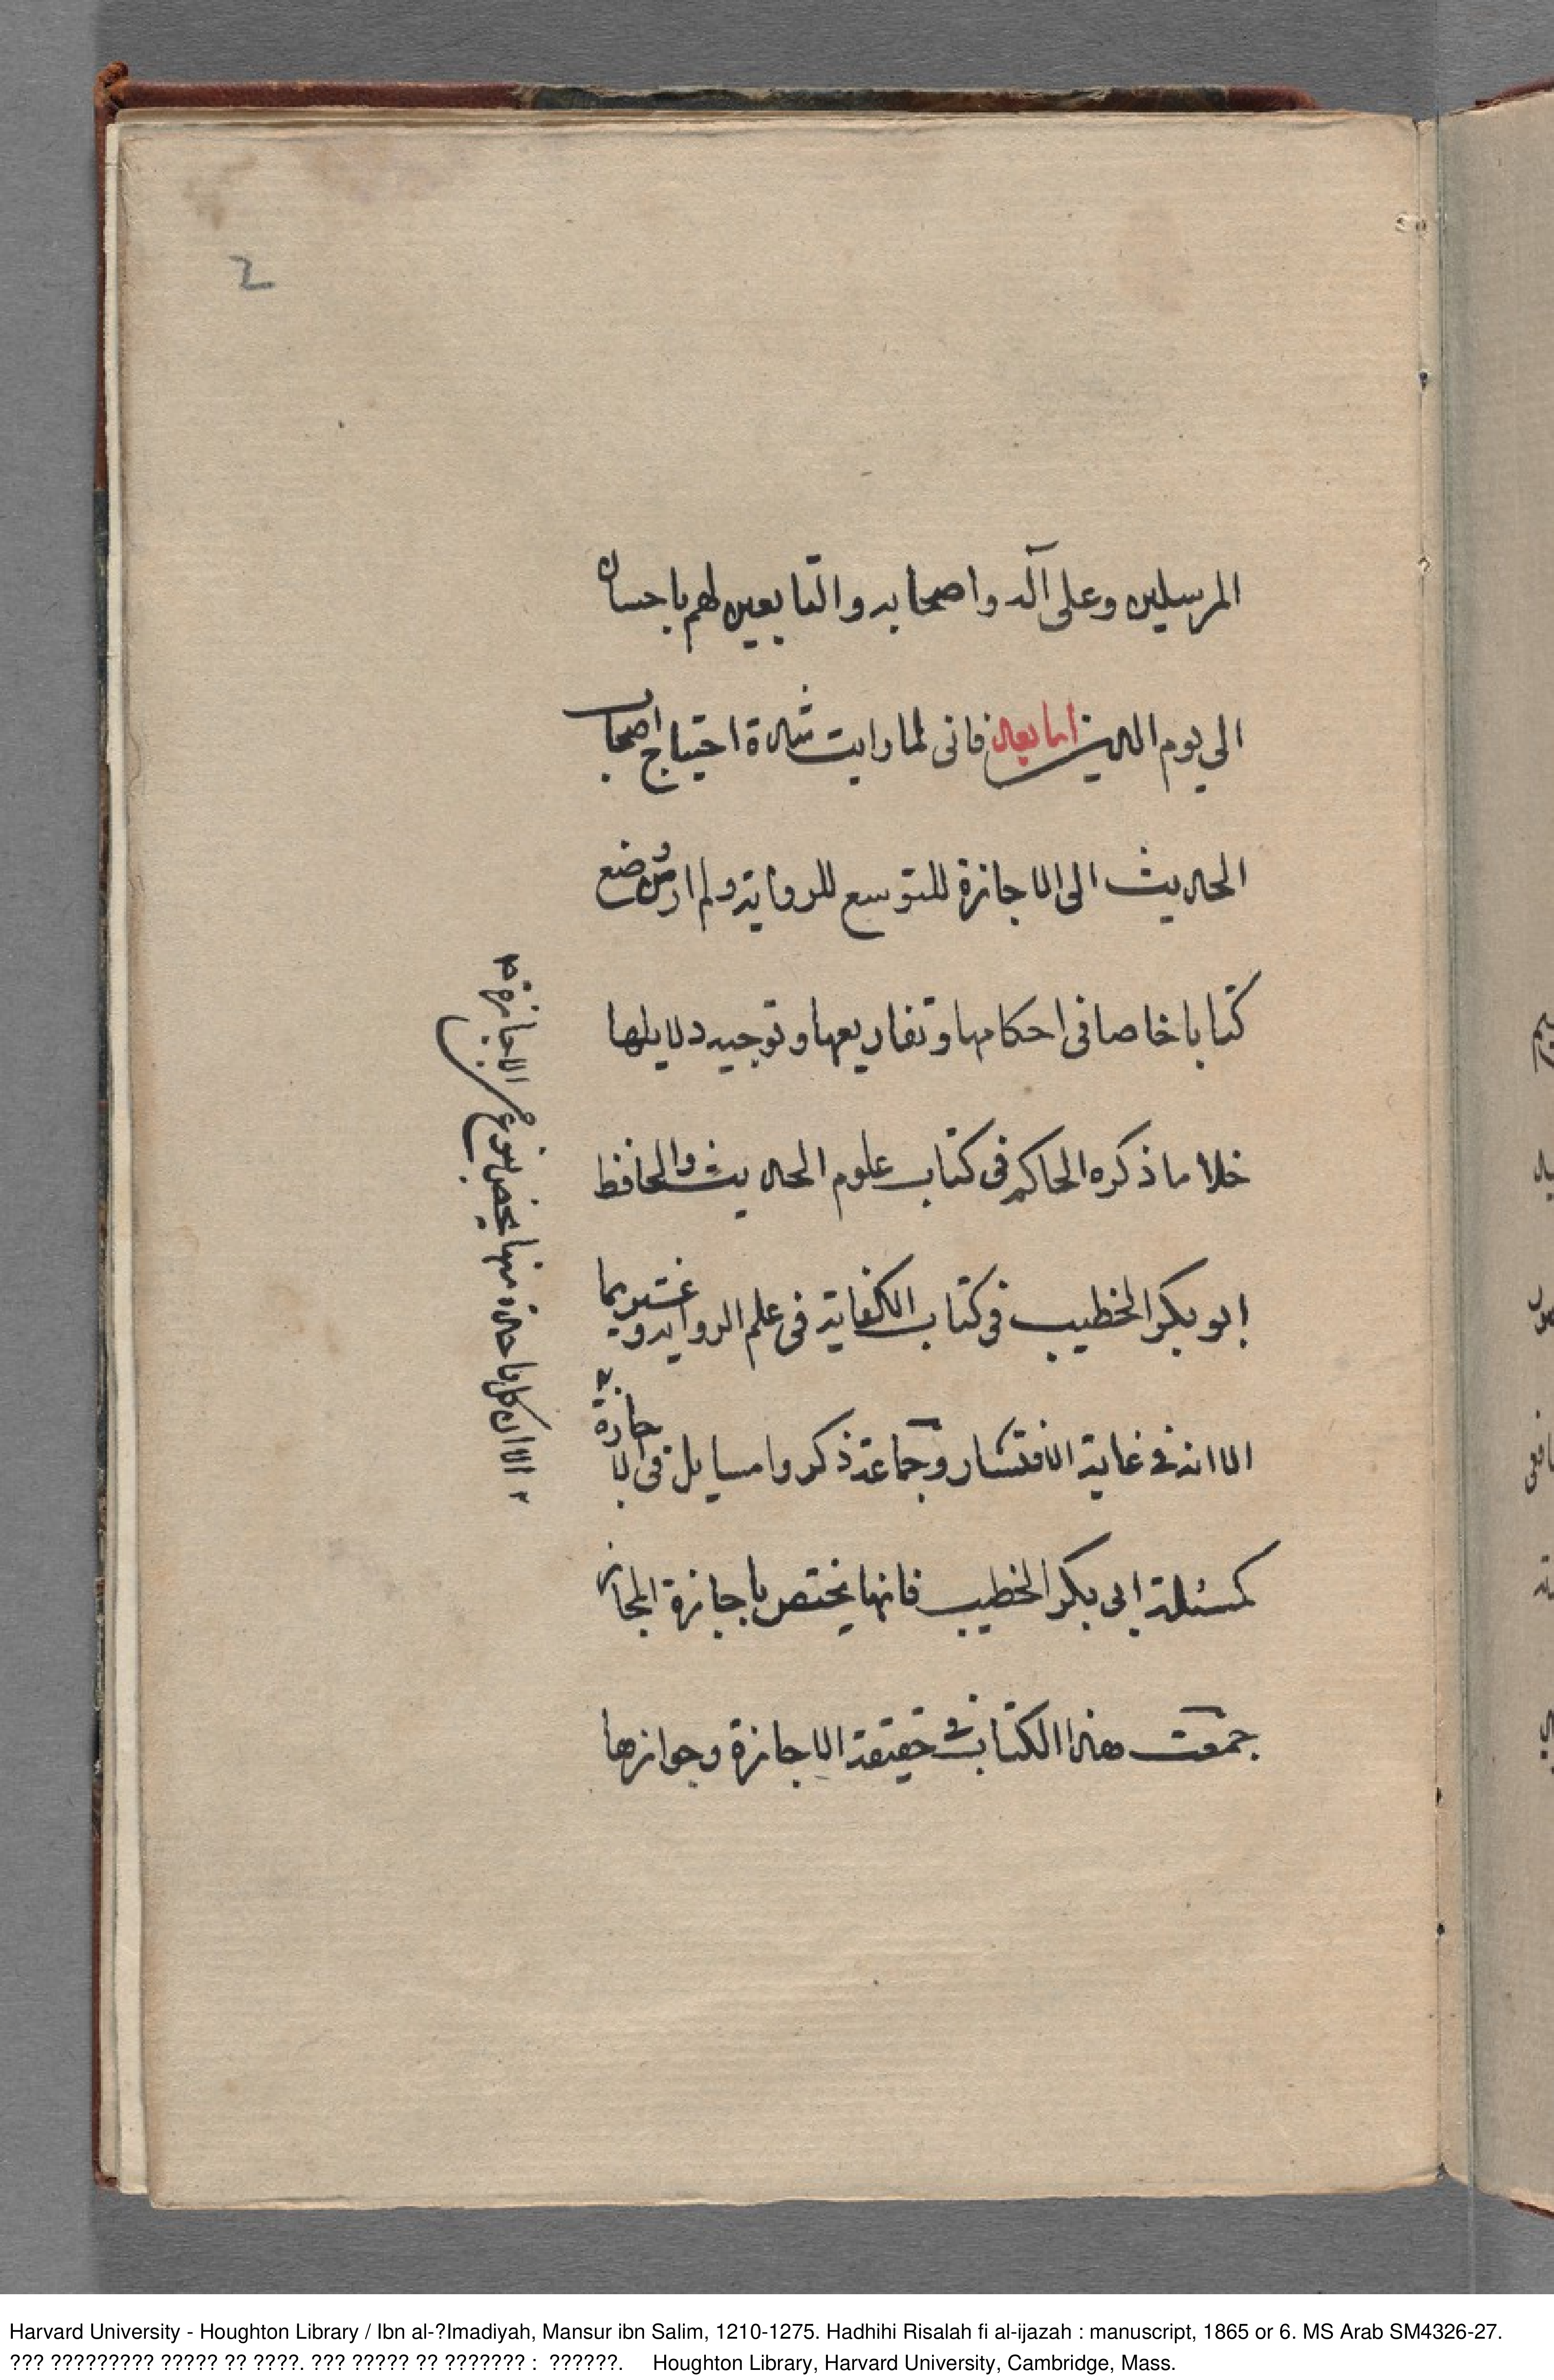 2
المرسلين وعلى آله واصحابه والتابعين لهم باحسان
الى يوم الدين اما بعد فانى لما رايت شدة احتياج اصحاب
الحديث الى الاجازة للتوسع للرواية ولم ار من وضع
كتابا خاصا فى احكامها وتفاريعها وتوجيه دلايلها
خلا ما ذكره الحاكم فى كتاب علوم الحديث والحافظ
ابو بكر الخطيب فى كتاب الكفاية فى علم الروايه و
الا انه فى غاية الانتشار وجماعة ذكروا مسايل فى الاجازة
كمسئلة ابى بكر الخطيب فانها يختص باجازة المجاز
جمعت هذا الكتاب فى حقيقة الاجازة وجوازها
الا ان كل واحدة منها يختص بنوع الاجازة
Harvard University - Houghton Library / Ibn al-?Imadiyah, Mansur ibn Salim, 1210-1275. Hadhihi Risalah fi al-ijazah : manuscript, 1865 or 6. MS Arab SM4326-27.
??? ????????? ????? ?? ????. ??? ????? ?? ??????? : ??????. Houghton Library, Harvard University, Cambridge, Mass.